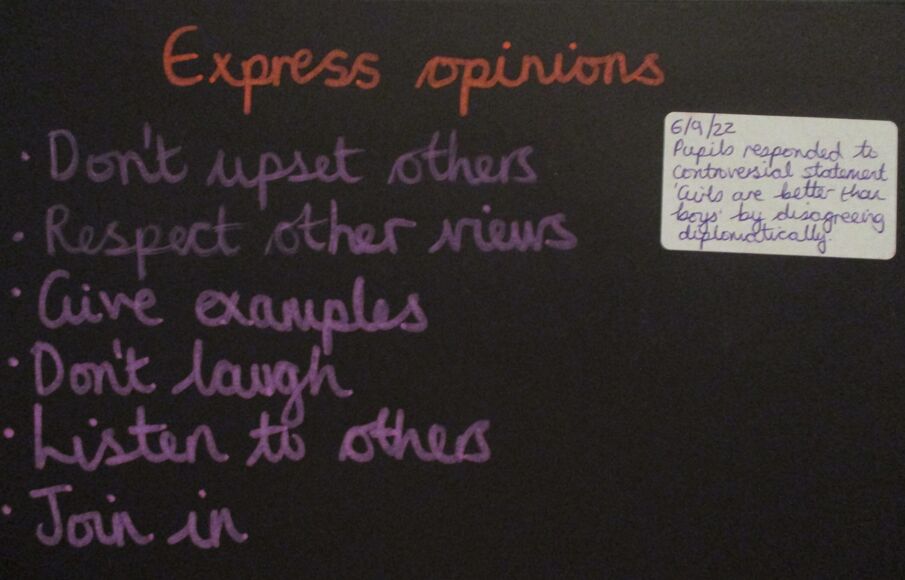 Express opinions
• Don't upset others
• Respect other views
• Give examples
• Don't laugh
• Listen to others
• Join in
6/9/22
Pupils responded to
controversial statement
'Girls are better than
boys' by disagreeing
diplomatically.